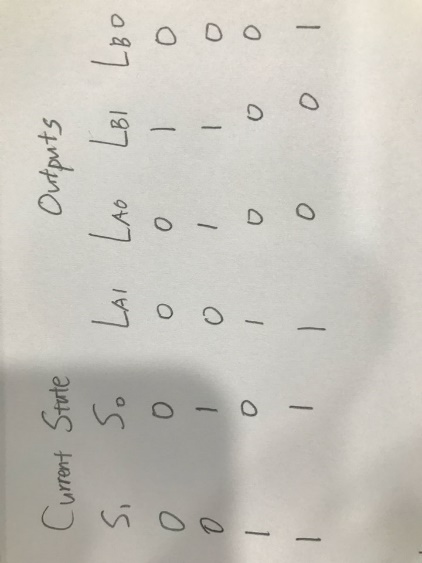 Current State Outputs
S1 S0 LA1 LA0 LB1 LB0
0 0 0 0 1 0
0 1 0 1 1 0
1 0 1 0 0 0
1 1 1 0 0 1